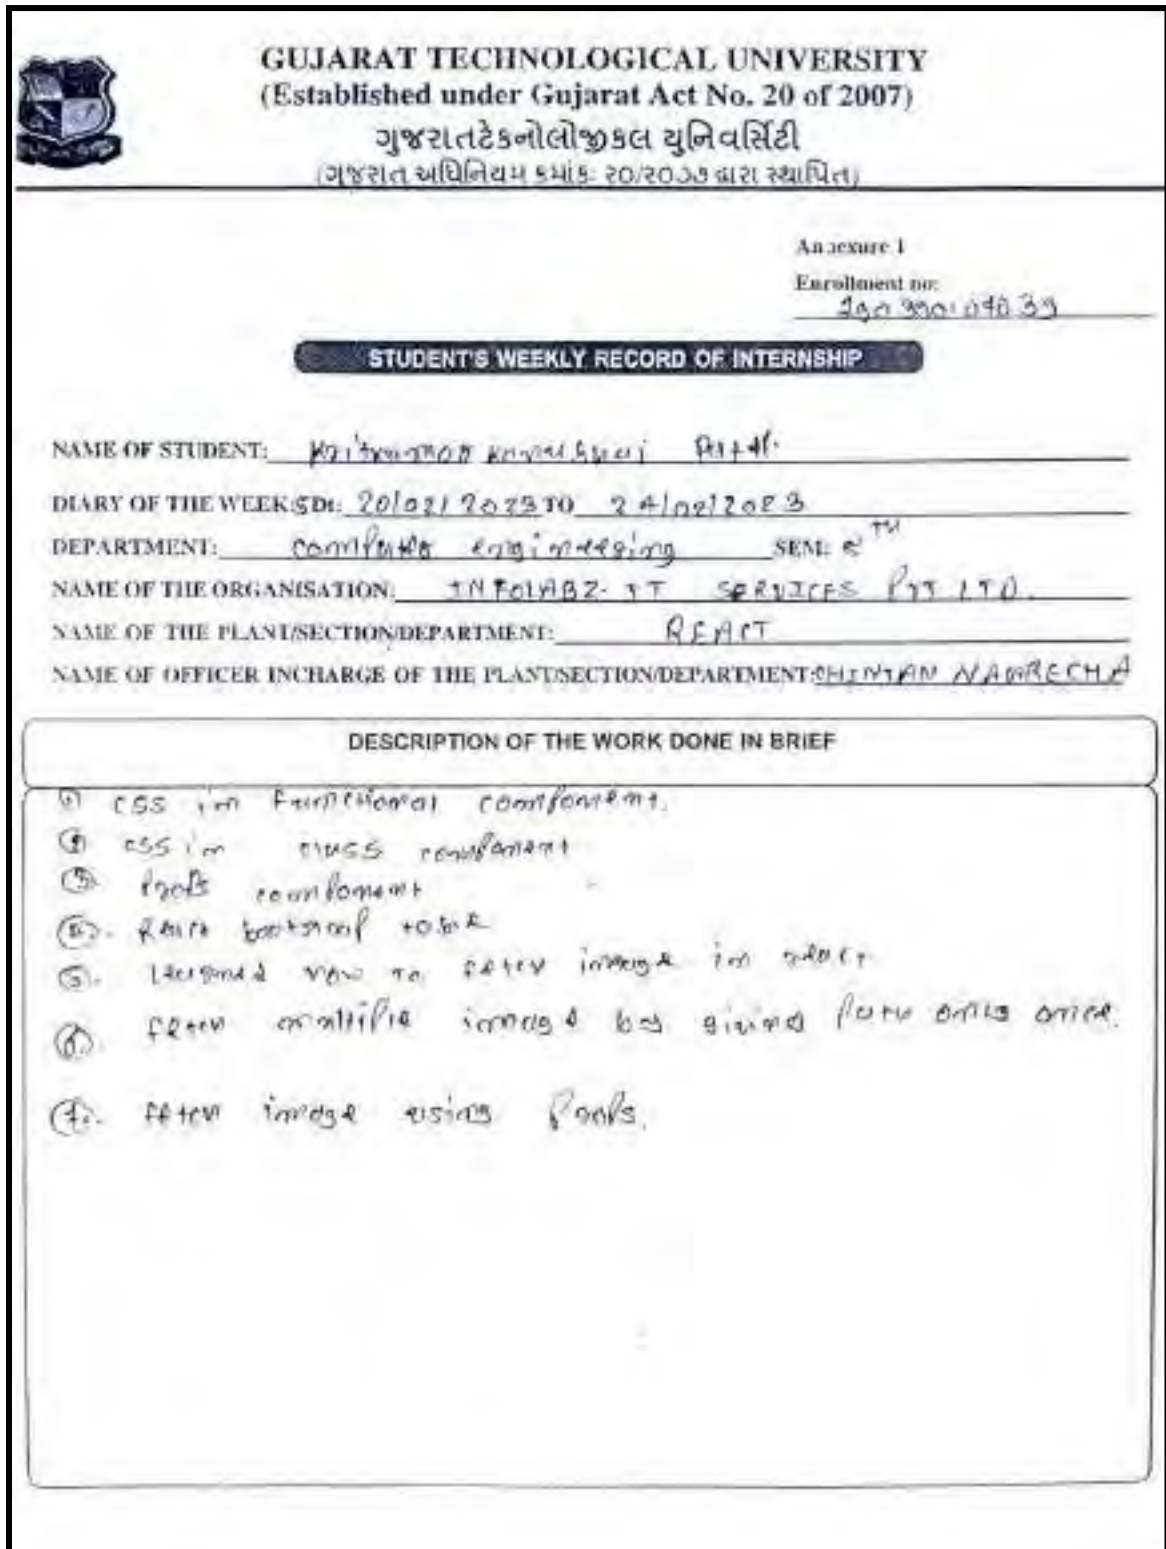 GUJARAT TECHNOLOGICAL UNIVERSITY
(Established under Gujarat Act No. 20 of 2007)
ગુજરાતટેકનોલોજીકલ યુનિવર્સિટી
(ગુજરાત અધિનિયમ ક્રમાંક: ૨૦/૨૦૦૭ દ્વારા સ્થાપિત)
Annexure 1
Enrollment no:
STUDENT'S WEEKLY RECORD OF INTERNSHIP
NAME OF STUDENT: Patel
DIARY OF THE WEEK:5Dt: 20/02/2023 TO 24/02/2023
DEPARTMENT: computer engineering SEM: 8TH
NAME OF THE ORGANISATION: INFOLABZ IT SERVICES PVT LTD.
NAME OF THE PLANT/SECTION/DEPARTMENT: REACT
NAME OF OFFICER INCHARGE OF THE PLANT/SECTION/DEPARTMENT: CHINTAN
DESCRIPTION OF THE WORK DONE IN BRIEF
① CSS in Functional component.
② CSS in class component
③ Props component
④. React bootstrap table
⑤. learned how to fetch image in react.
⑥. fetch multiple image by giving path only once.
⑦. fetch image using props.